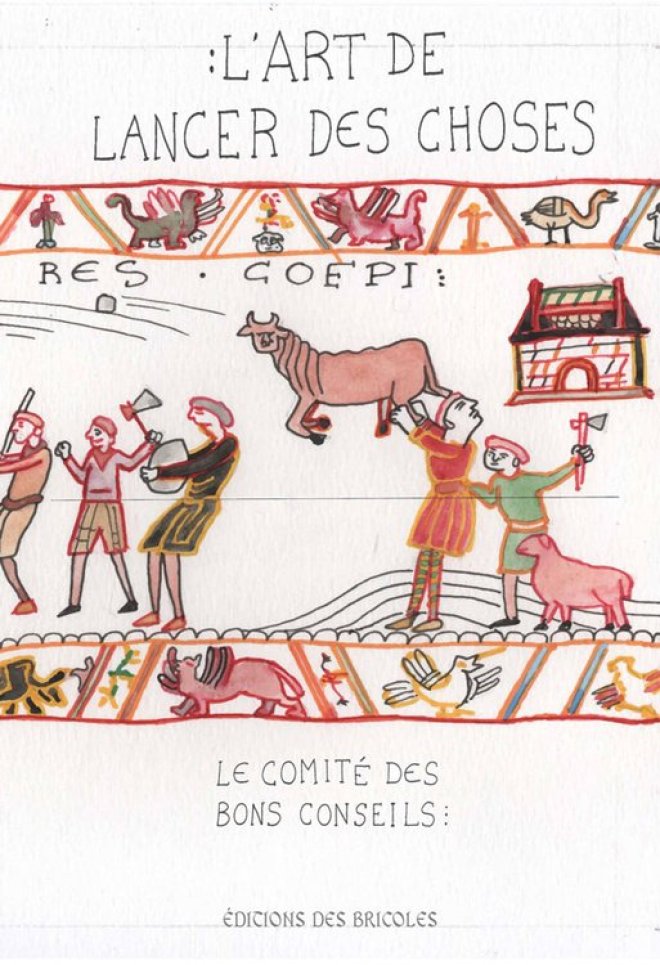 :L'ART DE
LANCER DES CHOSES
RES · COEPI:
LE COMITÉ DES
BONS CONSEILS:
ÉDITIONS DES BRICOLES